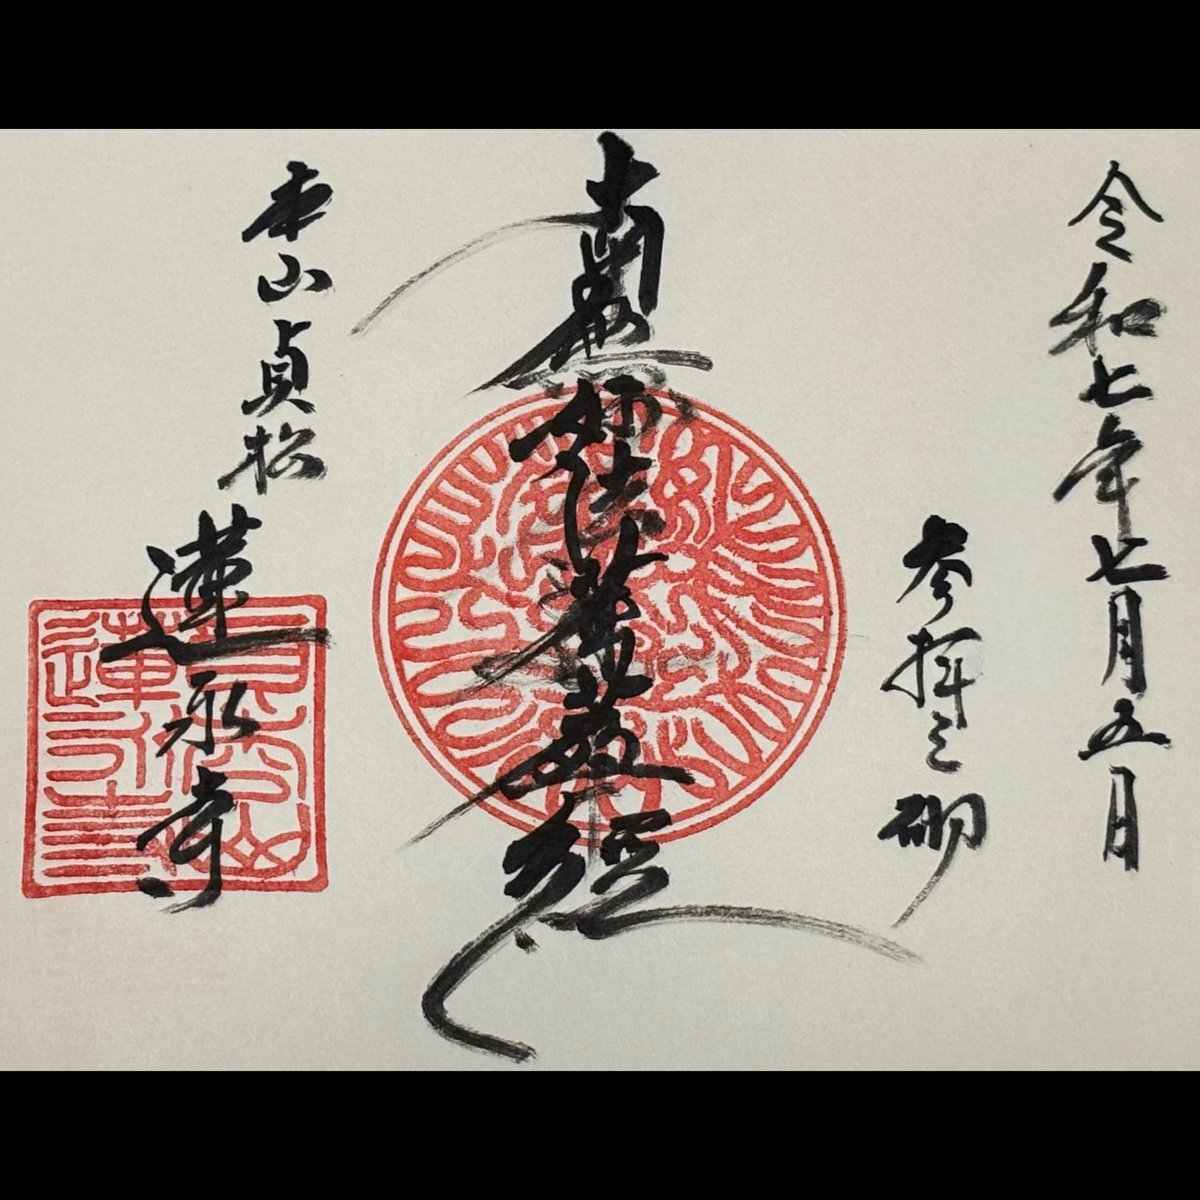 令和七年七月五日
参拝之砌
南無妙法蓮華経
本山貞松
蓮永寺